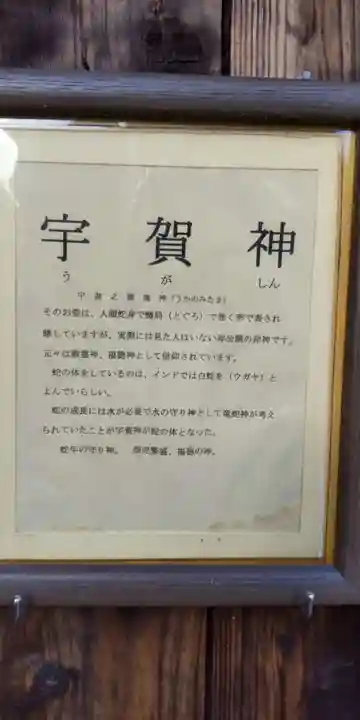 宇賀神
うがしん
宇賀之御魂神（うかのみたま）
そのお姿は、人頭蛇身で蜷局（とぐろ）で巻く形で表され
ますが、実際には見た人はいない
元々は穀霊神、福徳神として信仰されています。
蛇の体をしているのは、インドでは白蛇を（ウガヤ）と
よんでいらしい。
蛇の成長には水が必要で水の守り神として竜蛇神が考え
られていたことが宇賀神が蛇の体となった。
の守り神。 商売繁盛、福徳の神。